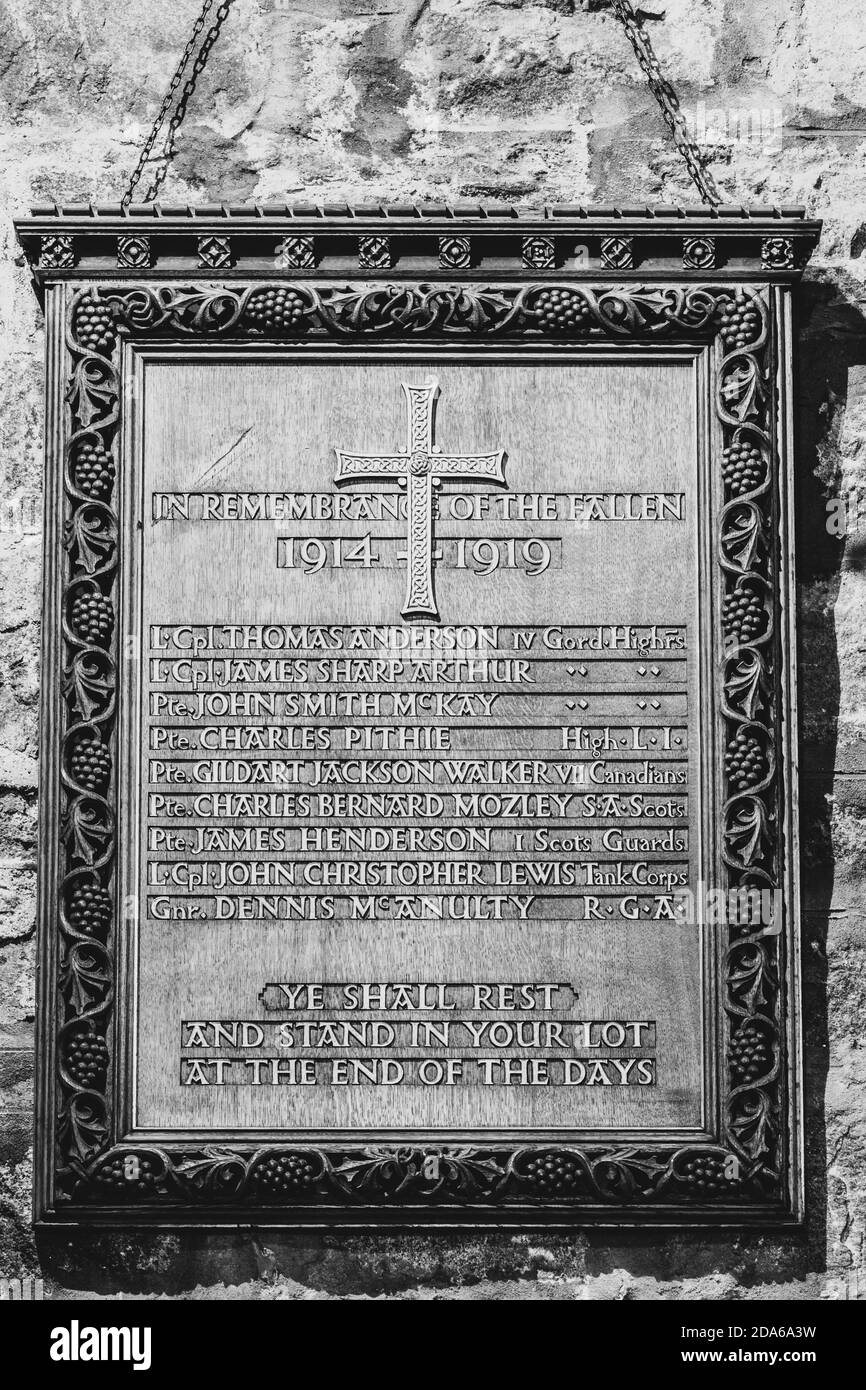 IN REMEMBRANCE OF THE FALLEN
1914 - 1919
L·Cpl. THOMAS ANDERSON IV Gord. Highrs.
L·Cpl. JAMES SHARP ARTHUR " "
Pte. JOHN SMITH McKAY " "
Pte. CHARLES PITHIE High·L·I·
Pte. GILDART JACKSON WALKER VII Canadians
Pte. CHARLES BERNARD MOZLEY S·A·Scots
Pte. JAMES HENDERSON I Scots Guards
L·Cpl·JOHN CHRISTOPHER LEWIS Tank Corps
Gnr. DENNIS McANULTY R·G·A·
YE SHALL REST
AND STAND IN YOUR LOT
AT THE END OF THE DAYS
alamy
Image ID: 2DA6A3W
www.alamy.com